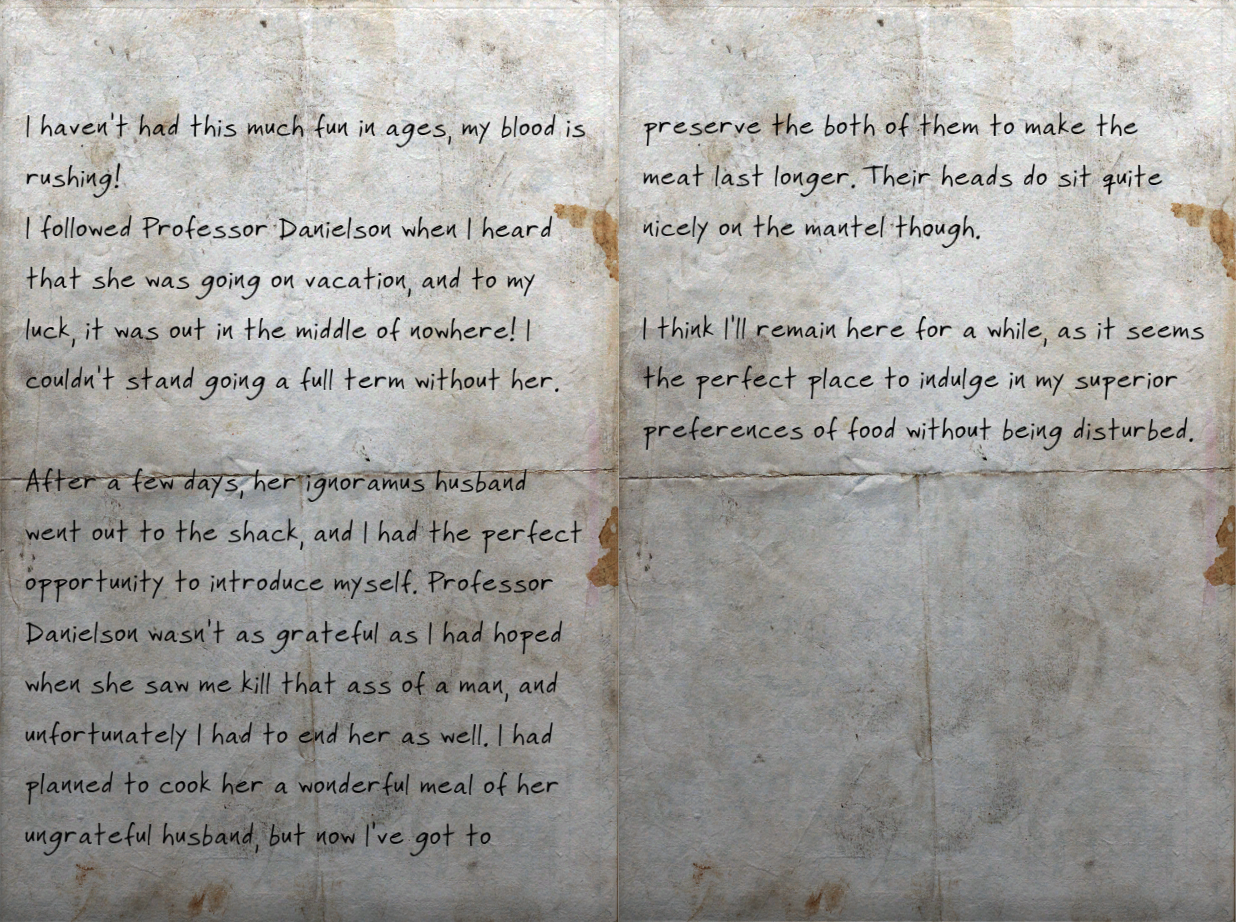 I haven't had this much fun in ages, my blood is
rushing!
I followed Professor Danielson when I heard
that she was going on vacation, and to my
luck, it was out in the middle of nowhere! I
couldn't stand going a full term without her.
After a few days, her ignoramus husband
went out to the shack, and I had the perfect
opportunity to introduce myself. Professor
Danielson wasn't as grateful as I had hoped
when she saw me kill that ass of a man, and
unfortunately I had to end her as well. I had
planned to cook her a wonderful meal of her
ungrateful husband, but now I've got to
preserve the both of them to make the
meat last longer. Their heads do sit quite
nicely on the mantel though.
I think I'll remain here for a while, as it seems
the perfect place to indulge in my superior
preferences of food without being disturbed.